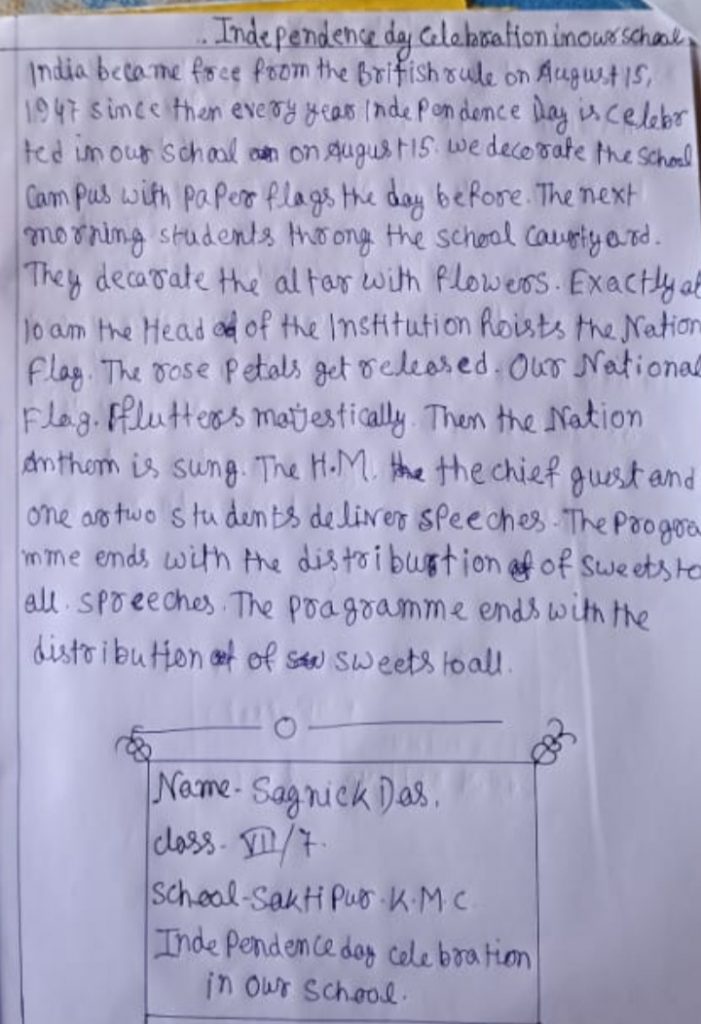 .. Independence day Celebration in our school
India became free from the British rule on August 15,
1947 since then every year Independence Day is celebr
ted in our school on August 15. We decorate the school
campus with paper flags the day before. The next
morning students throng the school courtyard.
They decarate the altar with flowers. Exactly at
10 am the Head of the Institution hoists the Nation
Flag. The rose Petals get released. Our National
Flag. flutters majestically. Then the Nation
Anthem is sung. The H.M. the chief guest and
one or two students deliver speeches. The Progra
mme ends with the distribution of sweets to
all. spreeches. The pragramme ends with the
distribution of sweets to all.
Name- Sagnick Das.
class- VII/7.
School- Saktipur. K.M.C
Independence day celebration
in our school.